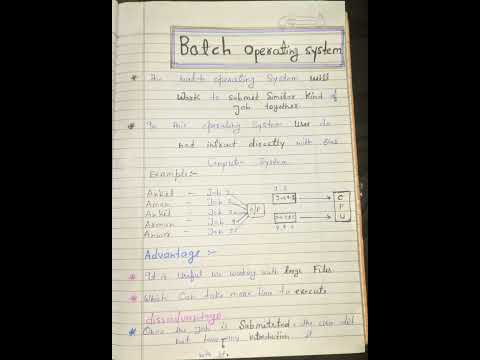 Batch operating system
* The batch operating System will
Work to submit Similar Kind of
job together
* In this operating System User do
not intract directly with the
Computer System
Example:-
Anket - Job 1
Aman - Job 2
Ankit - Job 3
Arman - Job
Anwar - Job
O/P
C
P
U
Advantage :-
* It is Useful we working with large Files
* Which Can take more time to execute
dissadvantage
* Once the job is Submitted, the user did
not have any introduction
with it.